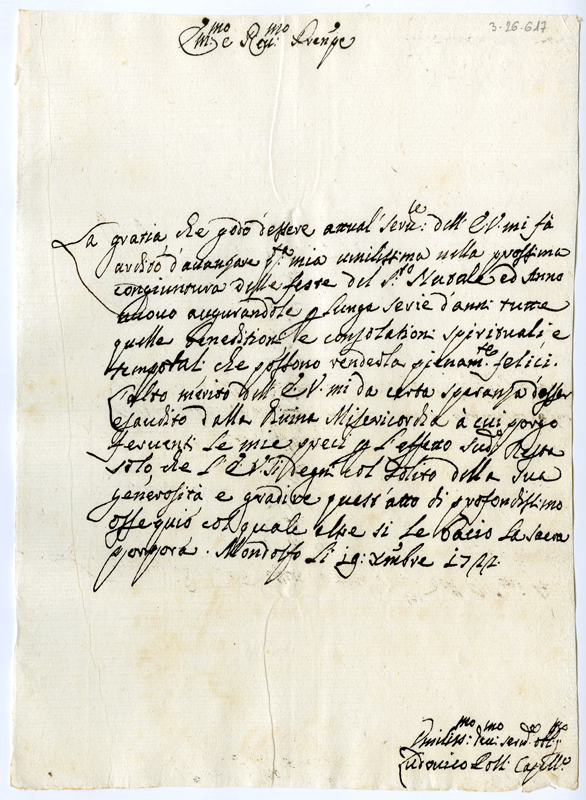 3-26-617
Em:mo e Reu:mo Prenpe
La gratia che godo d'essere attual' seru:le dell' E.V. mi fà
ardito d'auanzare q.ta mia umilissima nella prossima
congiuntura delle feste del S.to Natale ed Anno
nuouo augurandole p lunga serie d'anni tutte
quelle beneditioni e consolationi spirituali e
temporali che possono renderla pienam.te felici.
L'alto merito dell' E.V. mi da certa speranza d'esser
esaudito dalla Diuina Misericordia à cui porgo
feruenti le mie preci p l'effetto sud.o Resta
solo che l'E.V. si degni col solito della sua
generosità e gradire quest'atto di profondissimo
ossequio col quale
si le bacio la sacra
porpora. Mondolfo li 19: Xmbre 1722.
Umiliss:mo deu:mo seru.e obl:mo
Ludouico Polli Capell.o